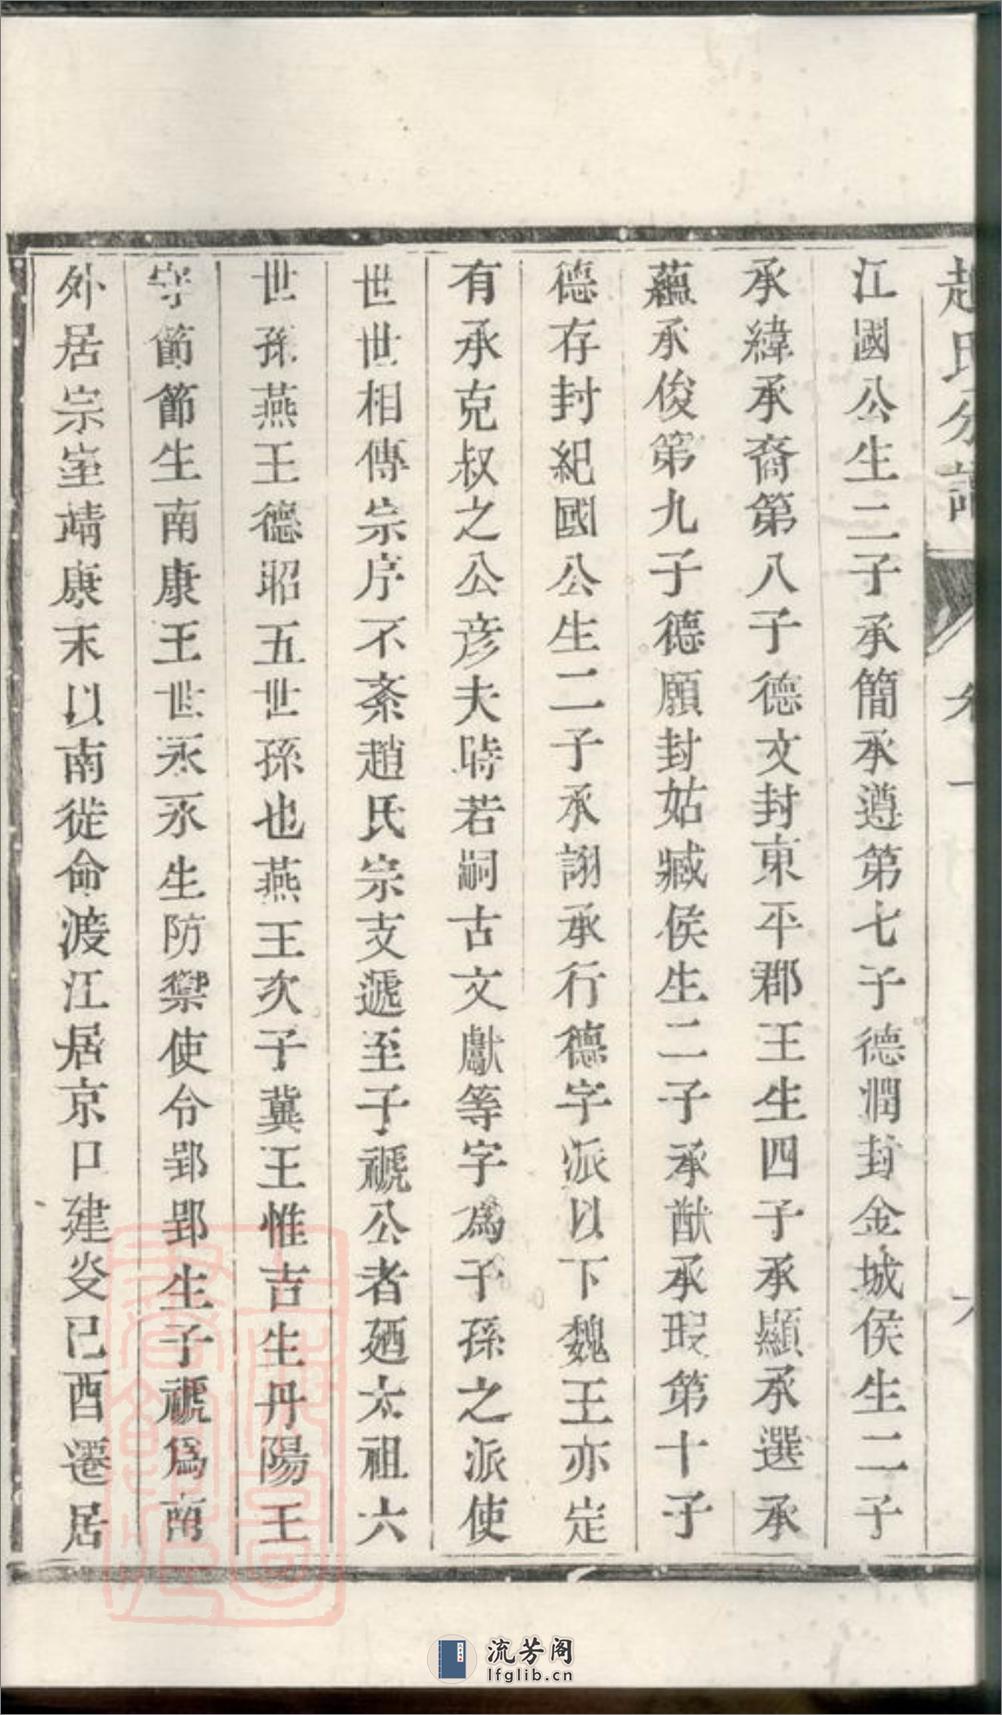 趙氏分譜
卷一
六
江國公生二子承簡承遵第七子德潤封金城侯生二子
承緯承裔第八子德文封東平郡王生四子承顯承選承
蘊承俊第九子德願封姑臧侯生二子承猷承瑕第十子
德存封紀國公生二子承詡承行德字派以下魏王亦定
有承克叔之公彥夫時若嗣古文獻等字爲子孫之派使
世世相傳宗序不紊趙氏宗支遞至子禠公者廼太祖六
世孫燕王德昭五世孫也燕王次子冀王惟吉生丹陽王
守節節生南康王世永永生防禦使令郢郢生子禠爲南
外居宗室靖康末以南徙命渡江居京口建炎己酉遷居
流芳阁
lfglib.cn